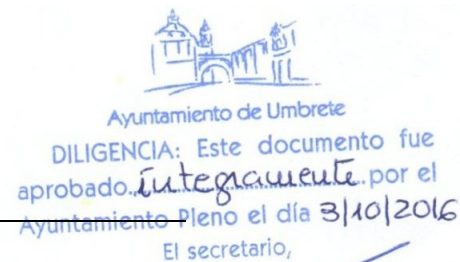 Ayuntamiento de Umbrete
DILIGENCIA: Este documento fue
aprobado integramente por el
Ayuntamiento Pleno el día 3/10/2016
El secretario,